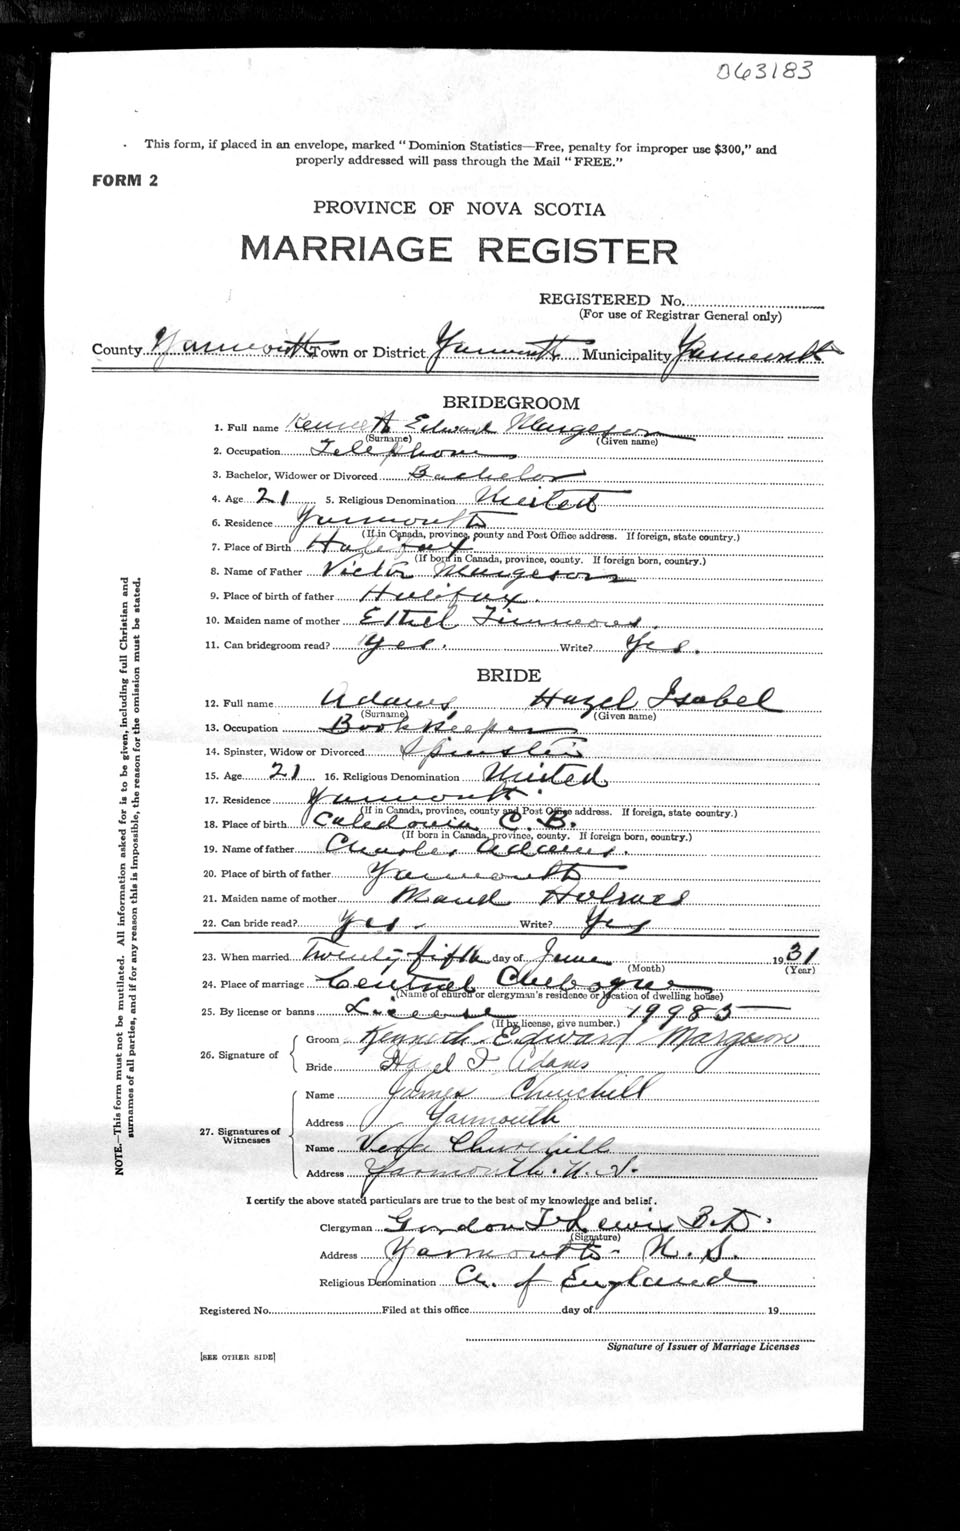 063183
This form, if placed in an envelope, marked "Dominion Statistics—Free, penalty for improper use $300," and
properly addressed will pass through the Mail "FREE."
FORM 2
PROVINCE OF NOVA SCOTIA
MARRIAGE REGISTER
REGISTERED No.
(For use of Registrar General only)
County Yarmouth Town or District Yarmouth Municipality Yarmouth
BRIDEGROOM
1. Full name Kenneth Edward Margeson
(Surname) (Given name)
2. Occupation Telephone
3. Bachelor, Widower or Divorced Bachelor
4. Age 21 5. Religious Denomination United
6. Residence Yarmouth
(If in Canada, province, county and Post Office address. If foreign, state country.)
7. Place of Birth Halifax
(If born in Canada, province, county. If foreign born, country.)
8. Name of Father Victor Margeson
9. Place of birth of father Halifax.
10. Maiden name of mother Ethel
11. Can bridegroom read? Yes. Write? Yes.
BRIDE
12. Full name Adams, Hazel Isabel
(Surname) (Given name)
13. Occupation Bookkeeper
14. Spinster, Widow or Divorced Spinster
15. Age 21 16. Religious Denomination United
17. Residence Yarmouth.
(If in Canada, province, county and Post Office address. If foreign, state country.)
18. Place of birth Caledonia C. B.
(If born in Canada, province, county. If foreign born, country.)
19. Name of father Charles Adams.
20. Place of birth of father Yarmouth
21. Maiden name of mother Maud Holmes
22. Can bride read? Yes. Write? Yes
23. When married Twenty fifth day of June 1931
(Month) (Year)
24. Place of marriage Central Chebogue
(Name of church or clergyman's residence or location of dwelling house)
25. By license or banns License 19985
(If by license, give number.)
26. Signature of
Groom Kenneth Edward Margeson
Bride Hazel I Adams
27. Signatures of Witnesses
Name James Churchill
Address Yarmouth
Name Vera Churchill
Address Yarmouth. N. S.
I certify the above stated particulars are true to the best of my knowledge and belief.
Clergyman Gordon T. Lewis B.D.
(Signature)
Address Yarmouth - N. S.
Religious Denomination Ch. of England
Registered No. Filed at this office day of 19
Signature of Issuer of Marriage Licenses
[SEE OTHER SIDE]
NOTE.—This form must not be mutilated. All information asked for is to be given, including full Christian and
surnames of all parties, and if for any reason this is impossible, the reason for the omission must be stated.